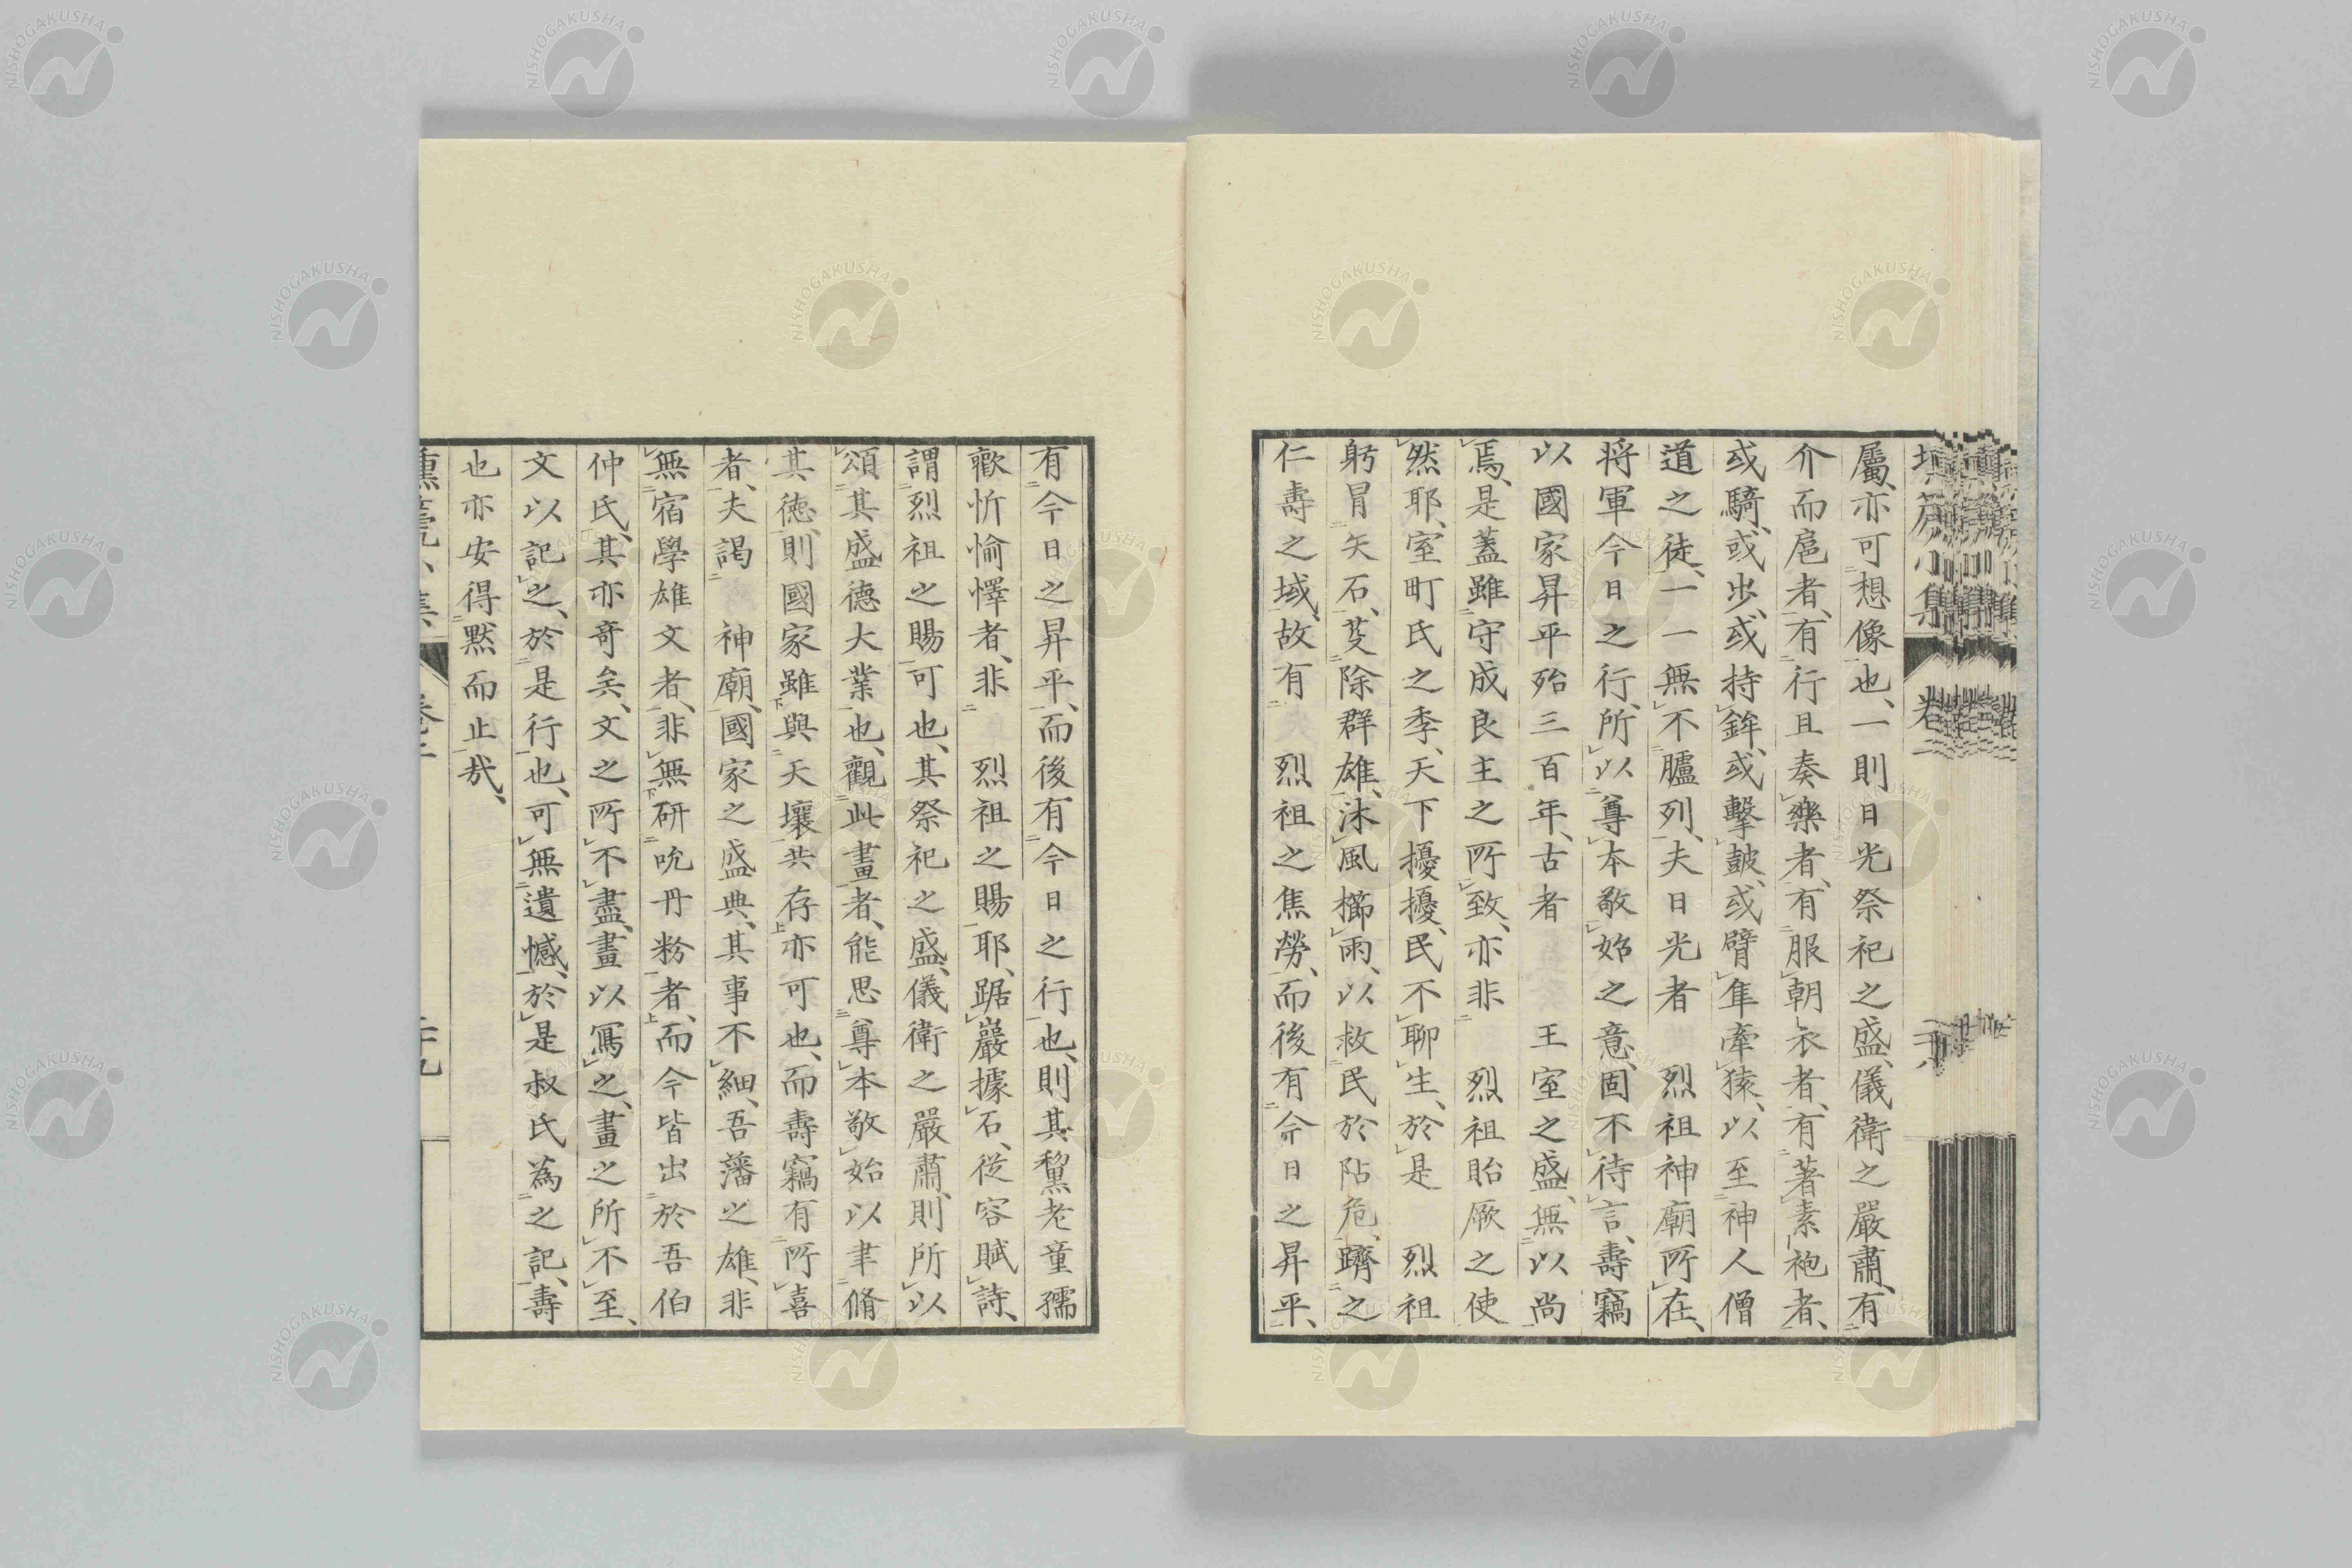 屬、亦可想像也、一則日光祭祀之盛、儀衛之嚴肅、有
介而扈者、有行且奏樂者、有服朝衣者、有著素袍者、
或騎、或步、或持鉾、或擊鼓、或臂隼牽猿、以至神人僧
道之徒、一一無不臚列、夫日光者　烈祖神廟所在、
将軍今日之行、所以尊本敬始之意、固不待言、壽竊
以國家昇平殆三百年、古者　王室之盛、無以尚
焉、是蓋雖守成良主之所致、亦非　烈祖貽厥之使
然耶、室町氏之季、天下擾擾、民不聊生、於是　烈祖
躬冒矢石、芟除群雄、沐風櫛雨、以救民於阽危、躋之
仁壽之域、故有　烈祖之焦勞、而後有今日之昇平、
有今日之昇平、而後有今日之行也、則其黧老童孺
歡忻愉懌者、非　烈祖之賜耶、踞巖據石、從容賦詩、
謂烈祖之賜可也、其祭祀之盛、儀衛之嚴肅、則所以
頌其盛德大業也、觀此畫者、能思尊本敬始以聿脩
其德、則國家雖與天壤共存亦可也、而壽竊有所喜
者、夫謁　神廟、國家之盛典、其事不細、吾藩之雄、非
無宿學雄文者、非無研吮丹粉者、而今皆出於吾伯
仲氏、其亦奇矣、文之所不盡、畫以寫之、畫之所不至、
文以記之、於是行也、可無遺憾、於是叔氏為之記、壽
也亦安得默而止哉、
NISHOGAKUSHA